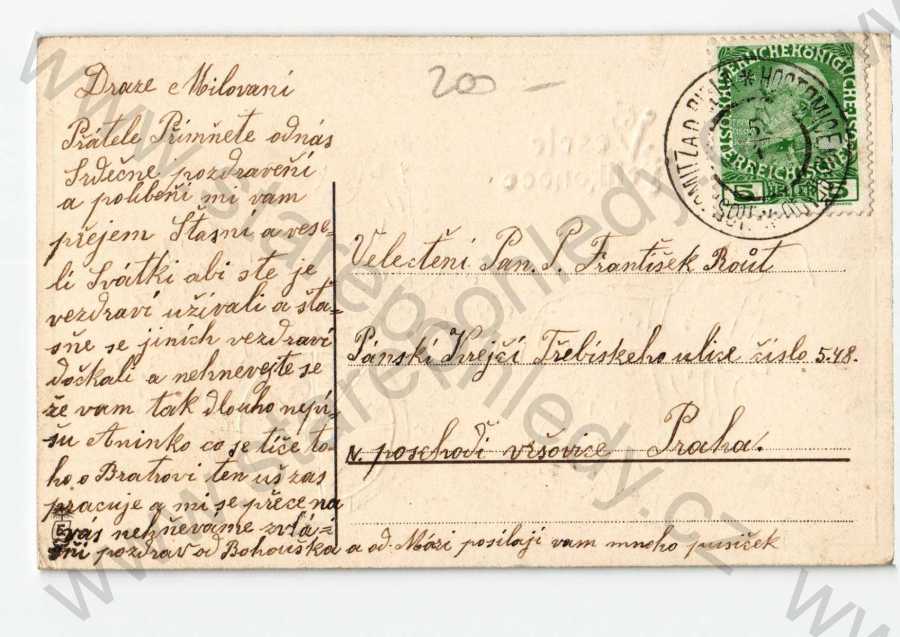 200 –
Draze Milovaní
Přátele Přimňete odnás
Srdečne pozdraveňí
a polibeňi mi vam
přejem Štasní a vese-
li Svátki abi ste je
vezdraví užívali a šta-
sňe se jiních vezdraví
dočkali a nehnevejte se
že vam tak dlouho nepí-
šu Aninko co se tiče to-
ho o Bratrovi ten uš zas
pracuje a mi se přece na
vás nehňevame zvlá-
šňi pozdrav od Bohouška a od Máři posílaji vam mnoho pusiček
Veselé
Vánoce
KAISERLICHE KÖNIGLICHE
ÖSTERREICHISCHE
5 HELLER 5
HOSTOMICE
Velectění Pan. P. František Routt
Pánski Krejčí Třebískeho ulice číslo 548.
v. poschoďí vršovice Praha.
www.starepohledy.cz